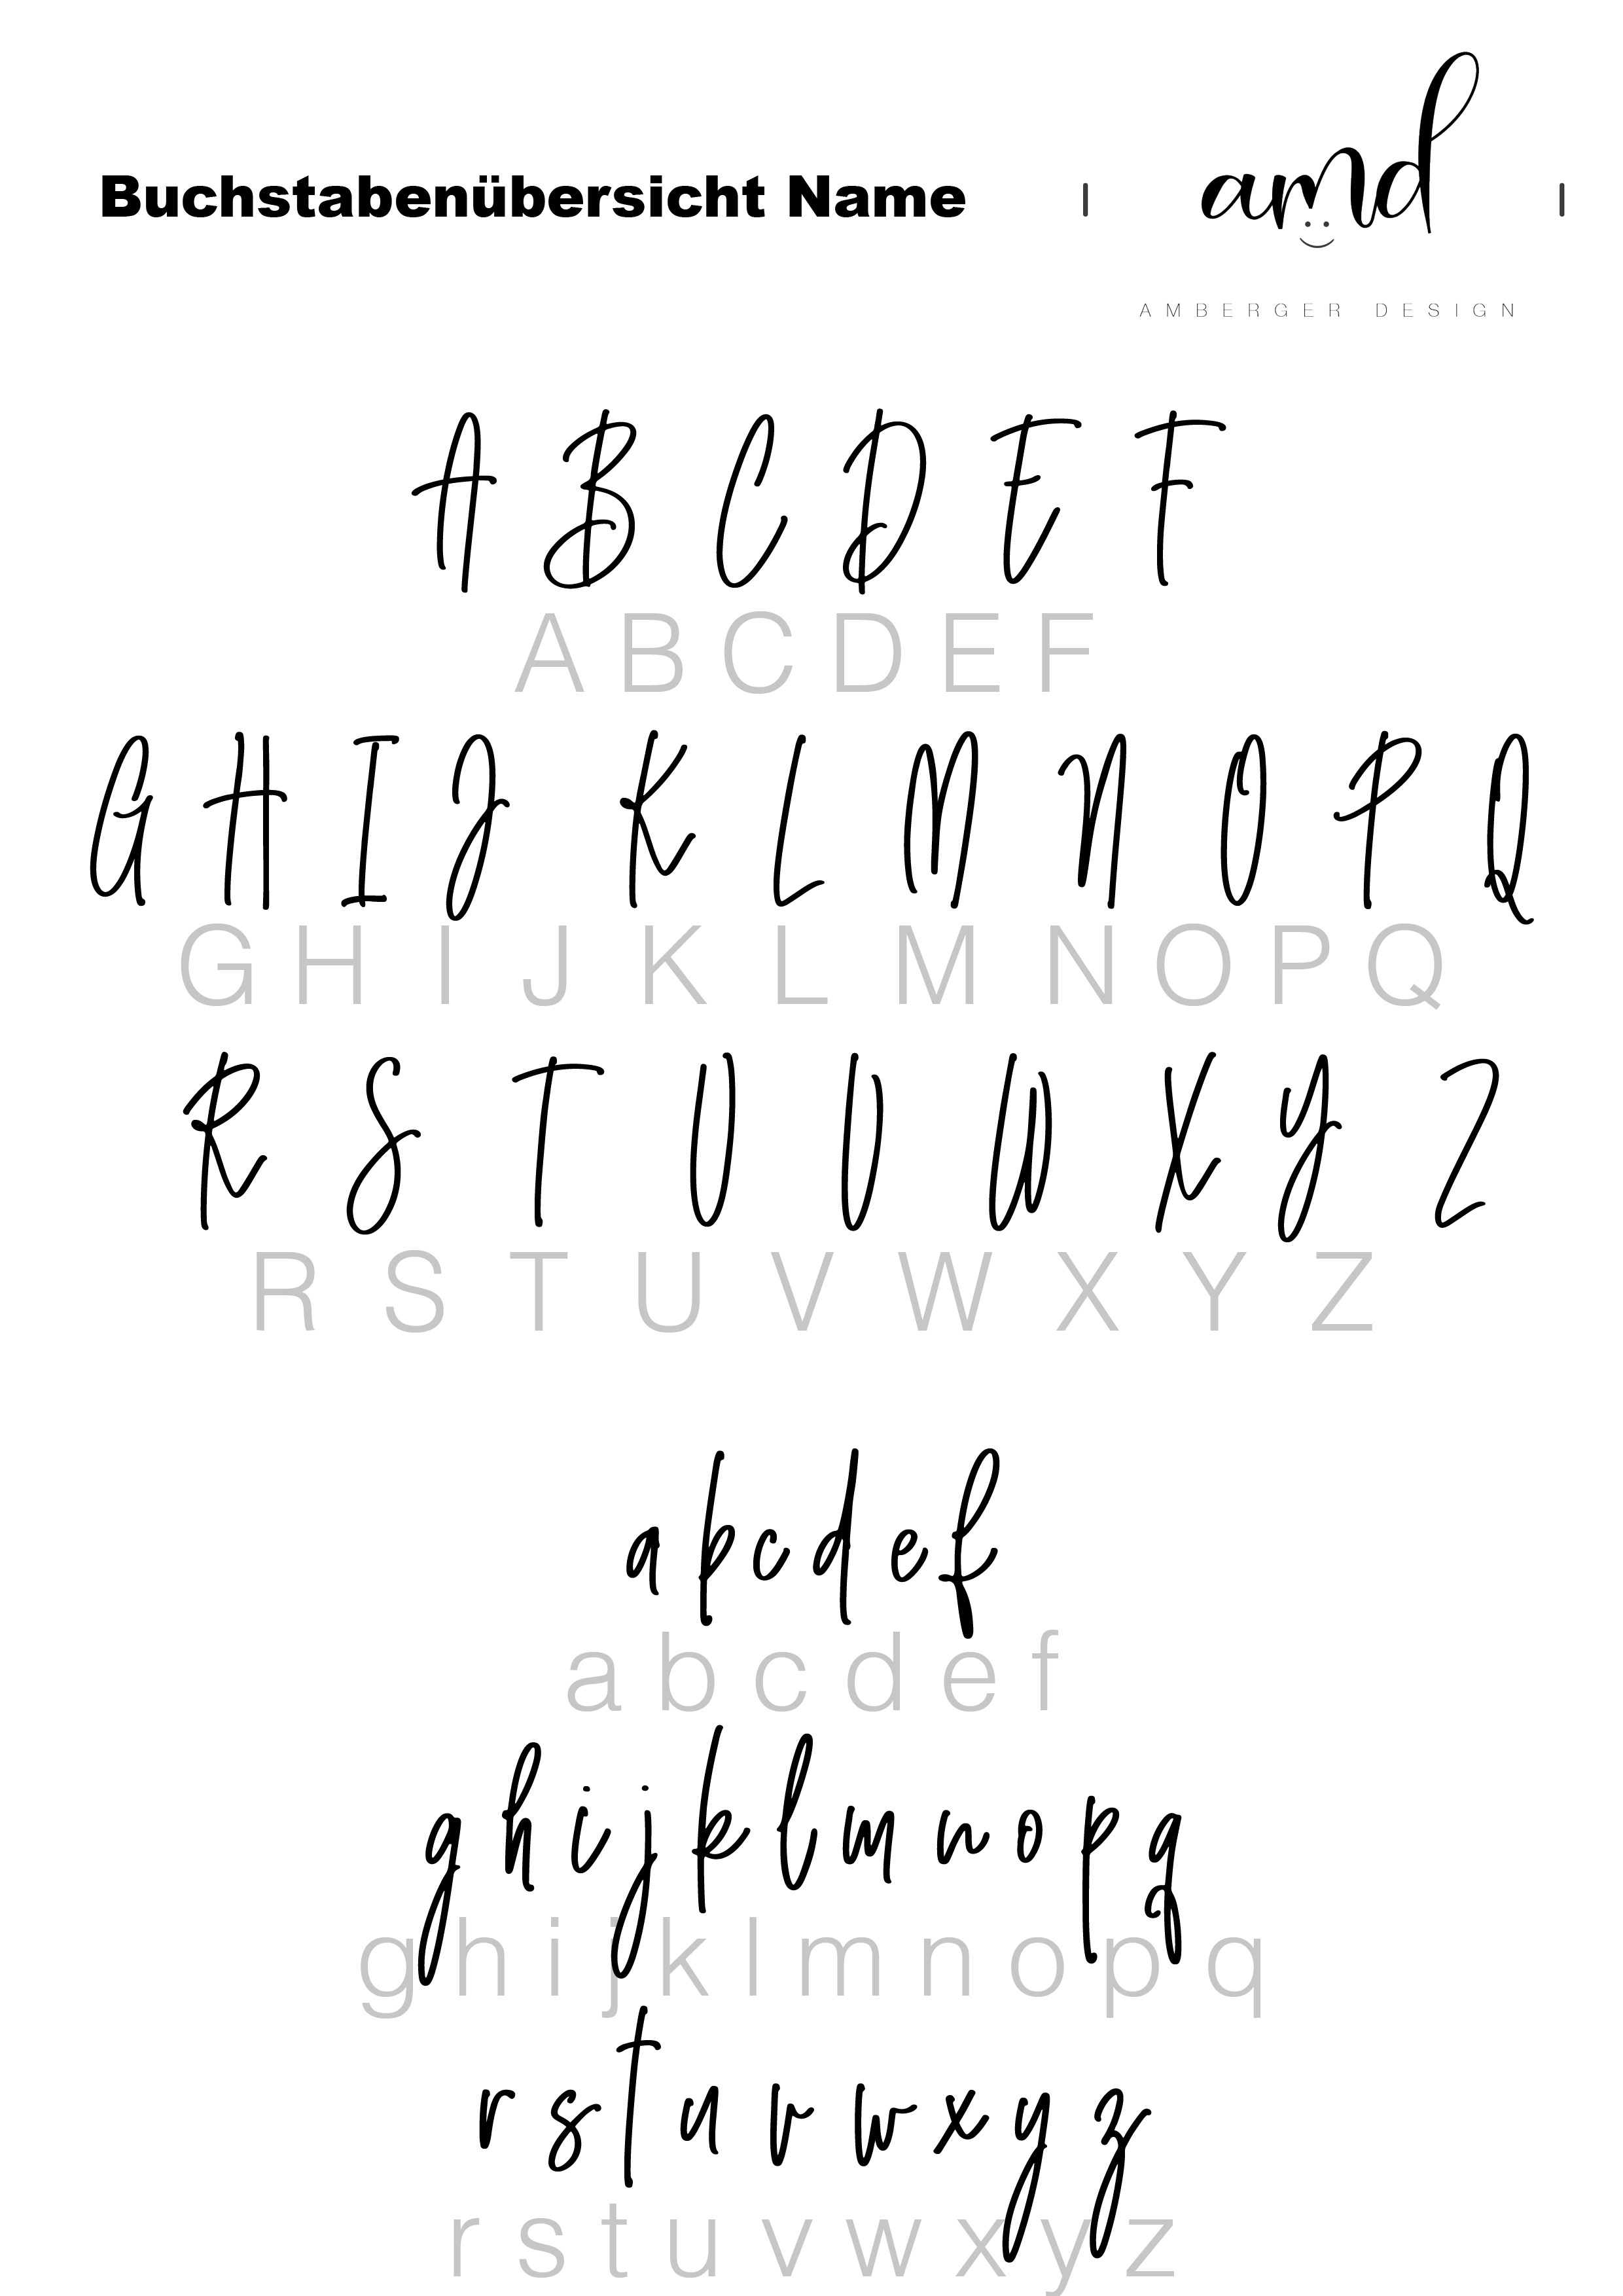 Buchstabenübersicht Name
amd
AMBERGER DESIGN
A B C D E F
A B C D E F
G H I J K L M N O P Q
G H I J K L M N O P Q
R S T U V W X Y Z
R S T U V W X Y Z
a b c d e f
a b c d e f
g h i j k l m n o p q
g h i j k l m n o p q
r s t u v w x y z
r s t u v w x y z